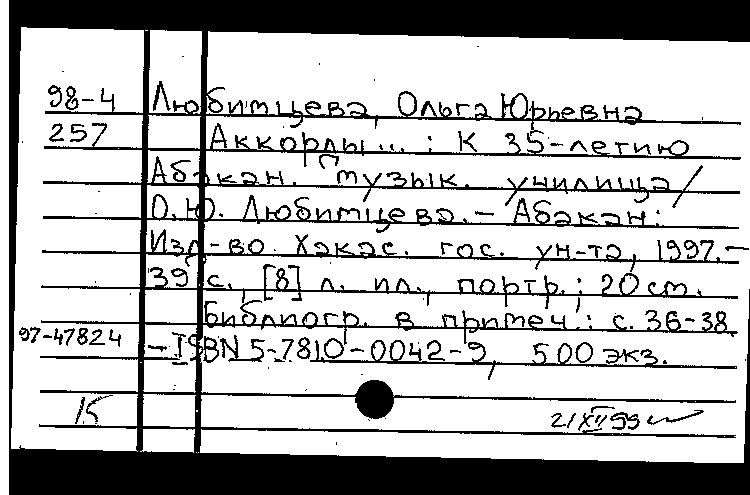 98-4 Любимцева, Ольга Юрьевна
257 Аккорды... : К 35-летию
Абакан. музык. училища/
О.Ю. Любимцева. - Абакан:
Изд-во Хакас. гос. ун-та, 1997. -
39 с., [8] л. ил., портр.; 20 см.
Библиогр. в примеч.: с. 36-38.
97-47824 - ISBN 5-7810-0042-9, 500 экз.
15 21 XII 99